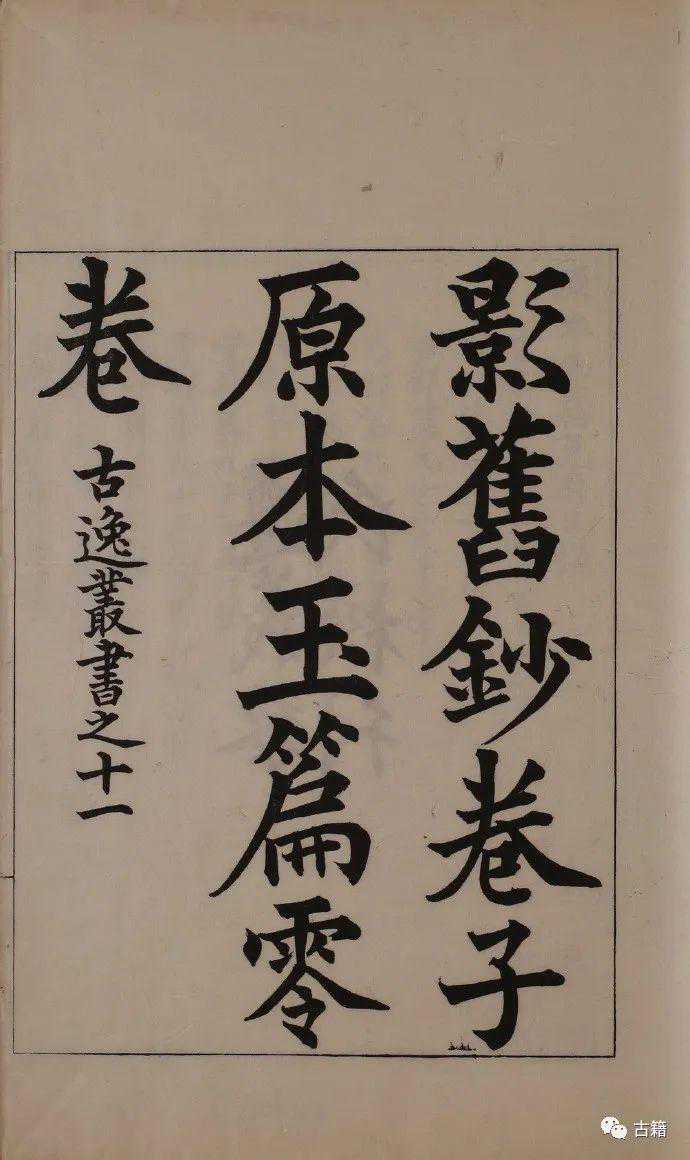 影舊鈔卷子
原本玉篇零
卷 古逸叢書之十一
古籍